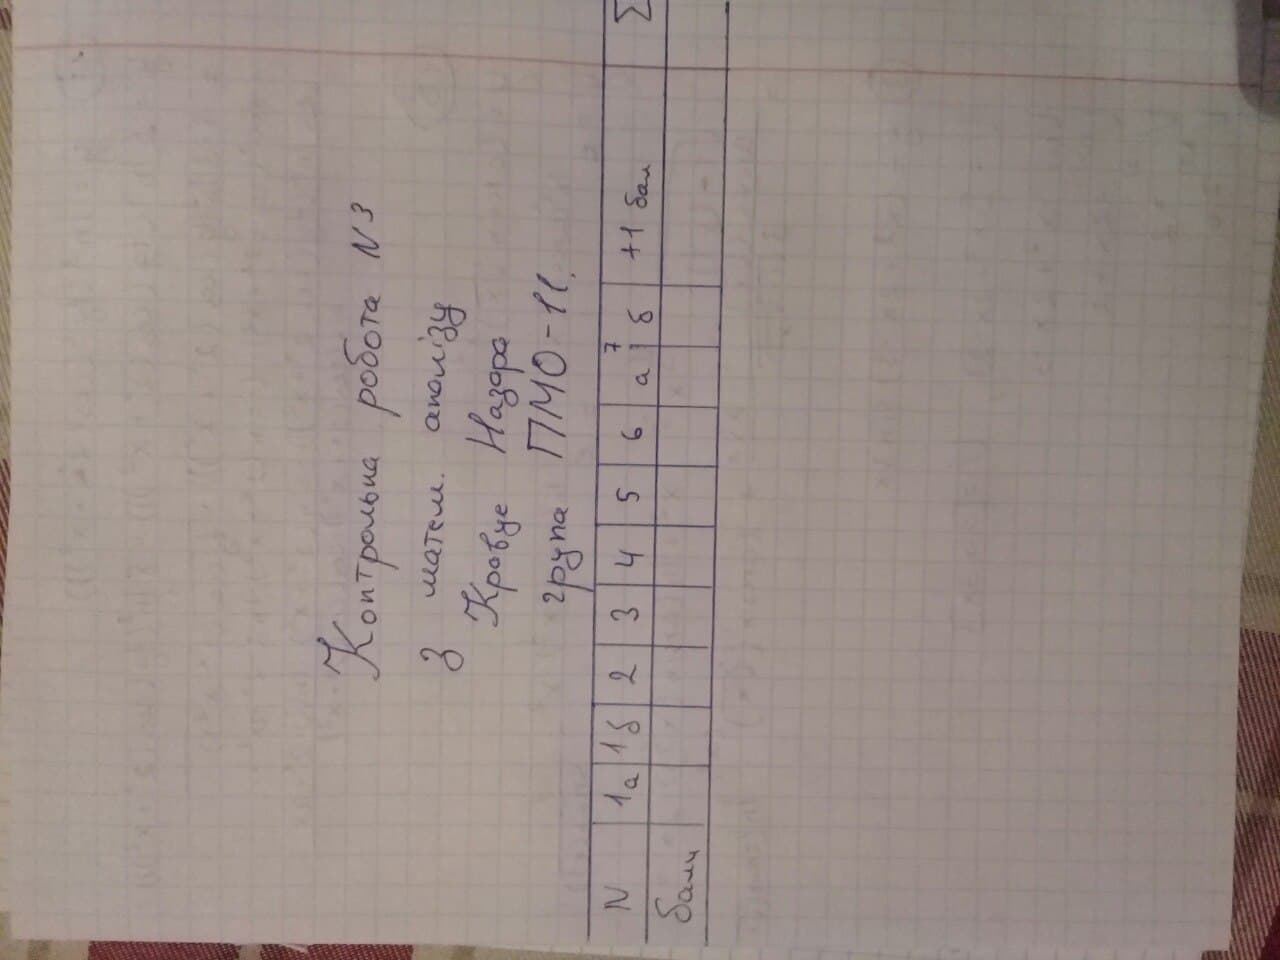 Контрольна робота N3
З матем. аналізу
Кравце Назара
група ПМО-11.
N 1а 1б 2 3 4 5 6 7 а б +1 бал Σ
бали